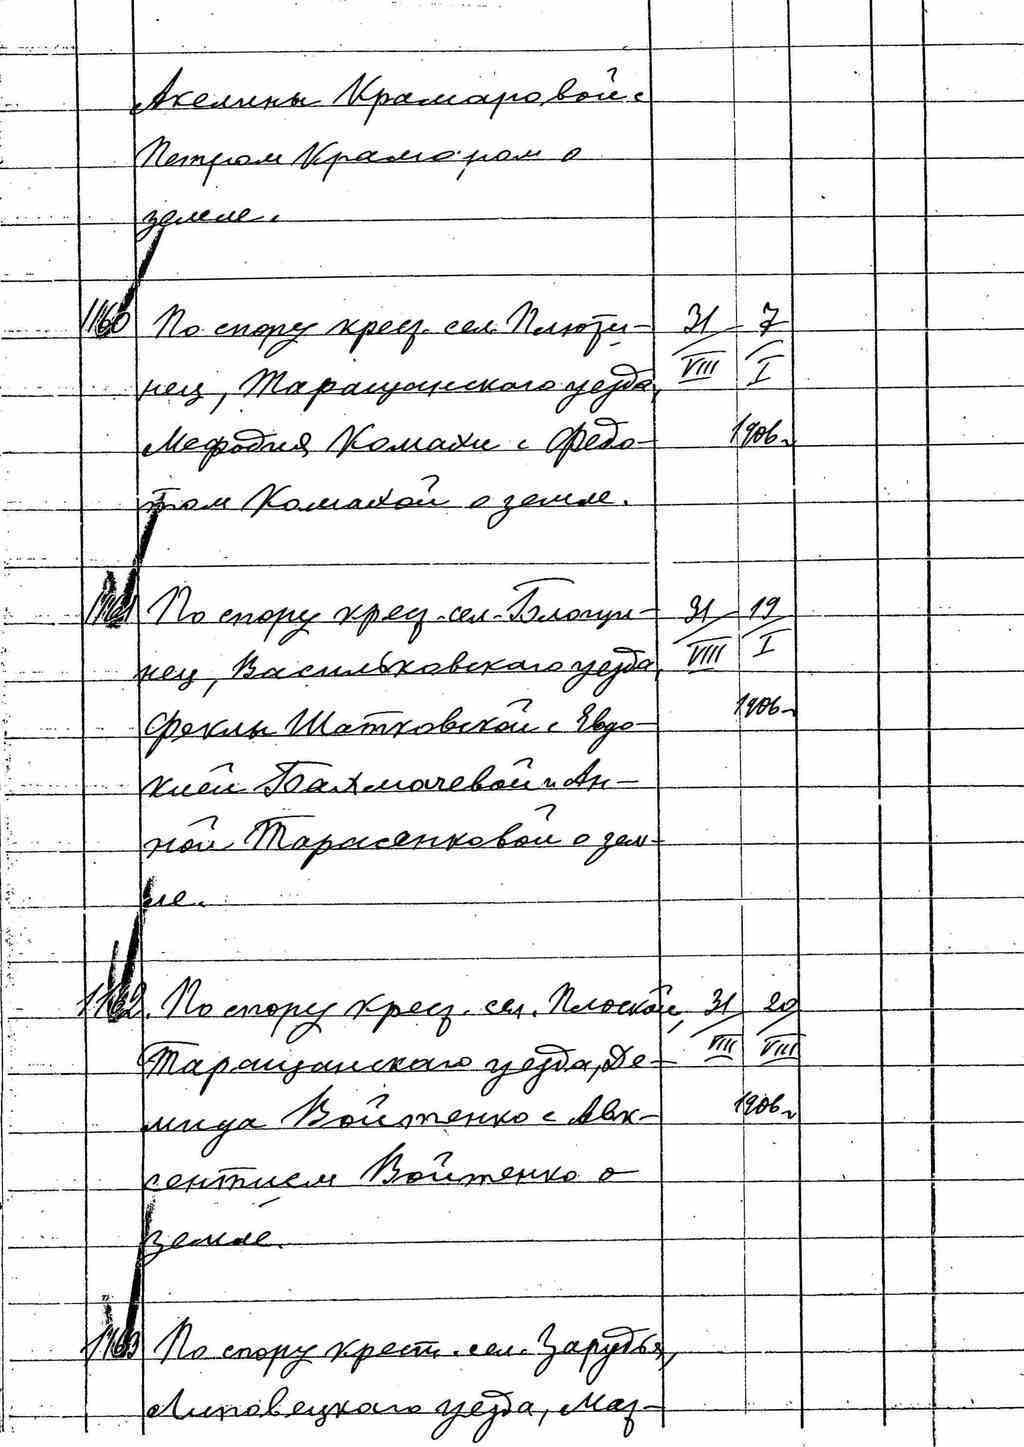 Акелины Крамаровой с
Петром Крамаром о
земле.
1160 По спору крест. сел. Плюти-
нец, Таращанского уезда,
Мефодия Комахи с Федо-
том Комахой о земле.
31/VIII 7/I
1906 г.
1161 По спору крест. сел. Блощи-
нец, Васильковского уезда,
Феклы Шатковской с Евдо-
кией Бахмачевой и Ан-
ной Тарасенковой о зем-
ле.
31/VIII 19/I
1906 г.
1162. По спору крест. сел. Плоской,
Таращанского уезда, Де-
мида Войтенко с Авк-
сентием Войтенко о
земле.
31/VIII 20/VIII
1906 г.
1163 По спору крест. сел. Зарудья,
Липовецкого уезда, Маг-